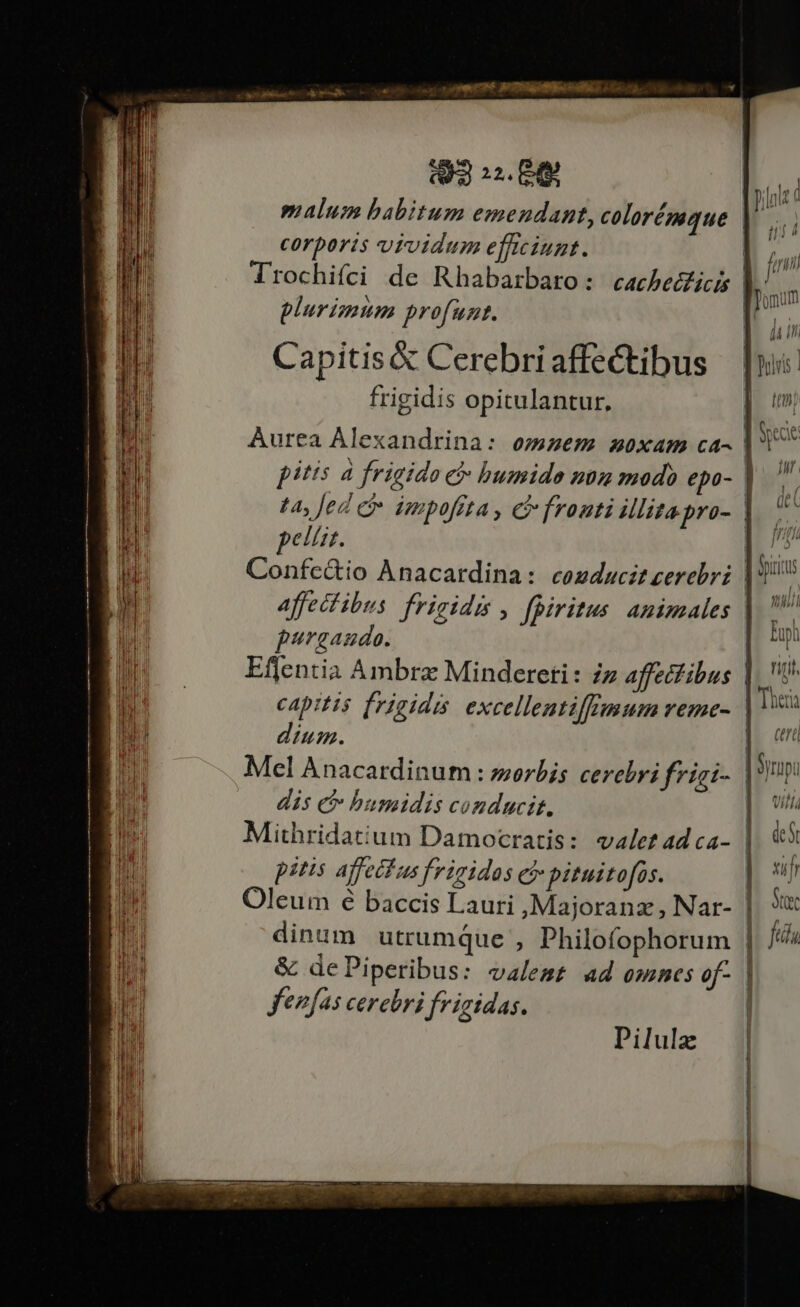 22.
malum habitum emendant, colorémque
corporis vividum efficiunt.
Trochiſci de Rhabarbaro: cachecticis
plurimùm proſunt.
Capitis & Cerebri affectibus
frigidis opitulantur.
Aurea Alexandrina: omnem noxam ca-
pitis à frigido & humido non modò epo-
ta, ſed & impoſita, & fronti illita pro-
pellit.
Confectio Anacardina: conducit cerebri
affectibus frigidis, ſpiritus animales
purgando.
Eſſentia Ambræ Mindereri: in affectibus
capitis frigidis excellentiſſimum reme-
dium.
Mel Anacardinum: morbis cerebri frigi-
dis & humidis conducit.
Mithridatium Damocratis: valet ad ca-
pitis affectus frigidos & pituitoſos.
Oleum é baccis Lauri, Majoranæ, Nar-
dinum utrumque, Philoſophorum
& de Piperibus: valent ad omnes of-
fenſas cerebri frigidas.
Pilulæ